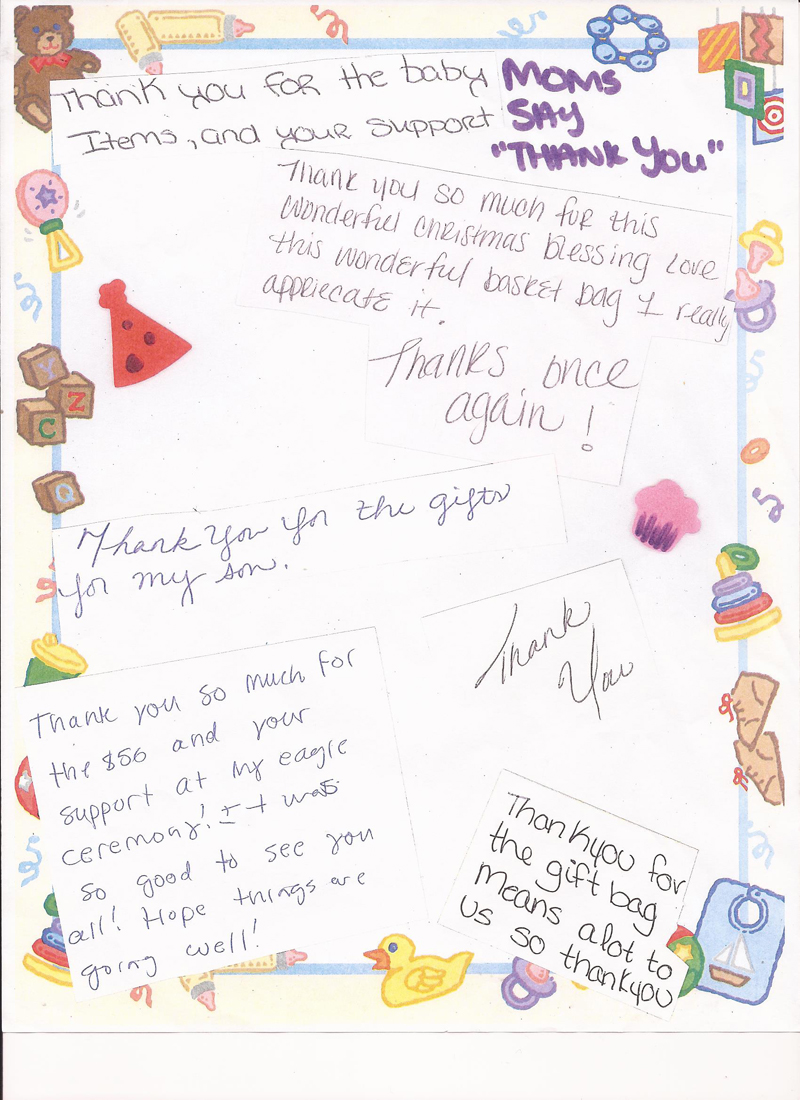 Thank you for the baby
Items, and your support
MOMS
SAY
"THANK YOU"
Thank you so much for this
wonderful christmas blessing Love
this wonderful basket bag I really
appriecate it.
Thanks once
again!
Thank You for the gifts
for my son.
Thank
You
Thank you so much for
the $56 and your
support at my eagle
ceremony! It was
so good to see you
all! Hope things are
going well!
Thankyou for
the gift bag
means alot to
us so thankyou
Y
Z
C
Q